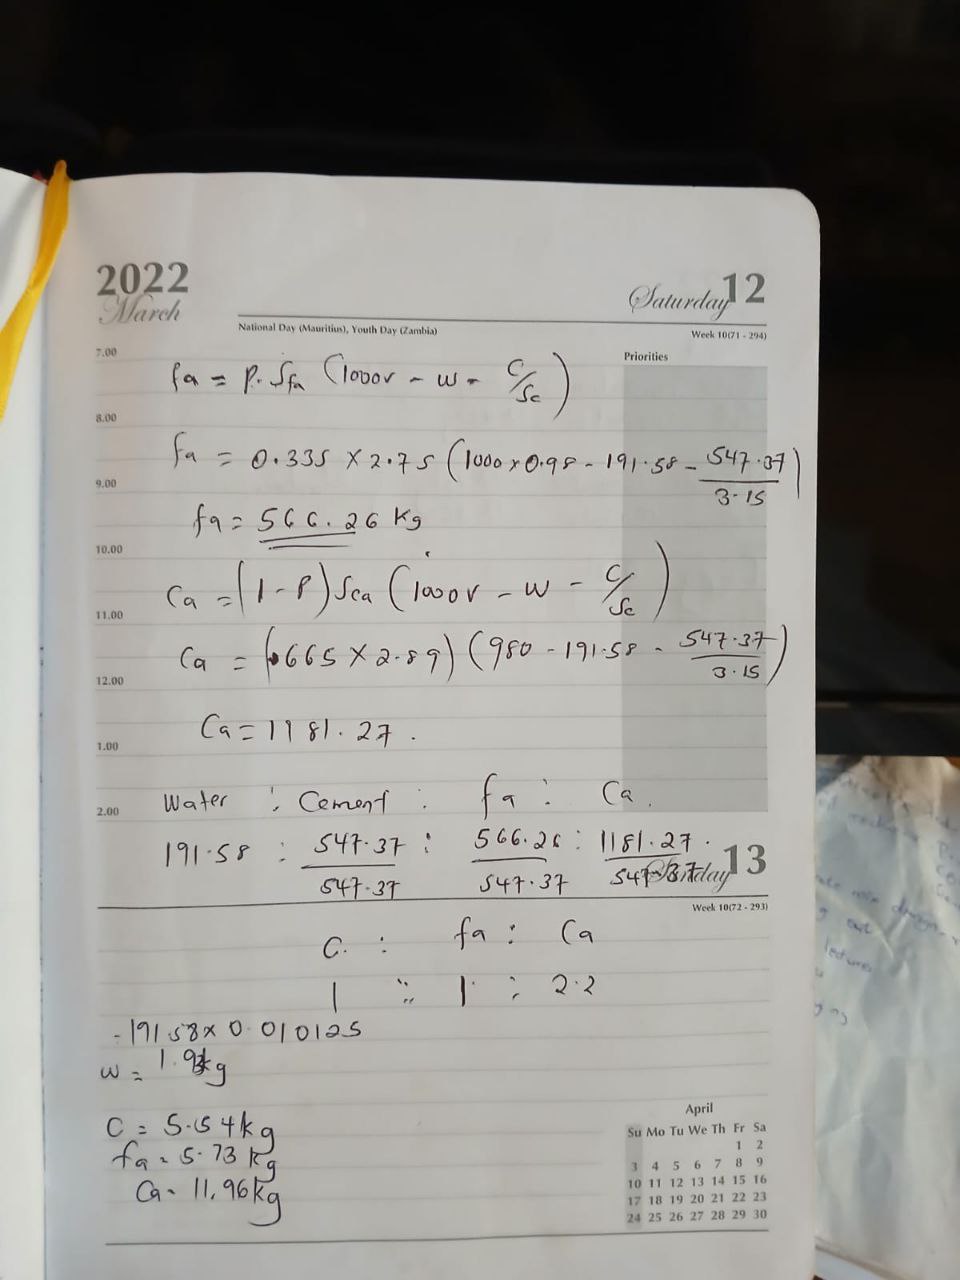 2022
March
Saturday 12
National Day (Mauritius), Youth Day (Zambia)
Week 10(71 - 294)
Priorities
7.00
fa = P. Sfa (1000v - w - C/Sc)
8.00
fa = 0.335 x 2.75 (1000 x 0.98 - 191.58 - 547.37/3.15)
9.00
fa = 566.26 kg
10.00
Ca = (1-P) Sca (1000v - w - C/Sc)
11.00
Ca = (.665 x 2.89) (980 - 191.58 - 547.37/3.15)
12.00
Ca = 1181.27.
1.00
Water : Cement : fa : Ca.
2.00
191.58 : 547.37/547.37 : 566.26/547.37 : 1181.27/547.37
Sunday 13
Week 10(72 - 293)
C. : fa : Ca
1 : 1 : 2.2
- 191.58 x 0.010125
w = kg
C = 5.54 kg
fa = 5.73 kg
Ca = 11.96 kg
April
Su Mo Tu We Th Fr Sa
1 2
3 4 5 6 7 8 9
10 11 12 13 14 15 16
17 18 19 20 21 22 23
24 25 26 27 28 29 30